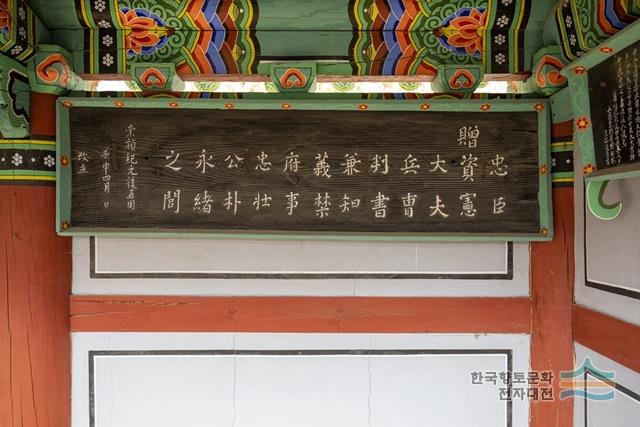 忠臣
贈資憲
大夫
兵曹
判書
兼知
義禁
府事
忠壯
公朴
永緖
之閭
崇禎紀元後五周
壬申四月 日
改立
한국향토문화
전자대전